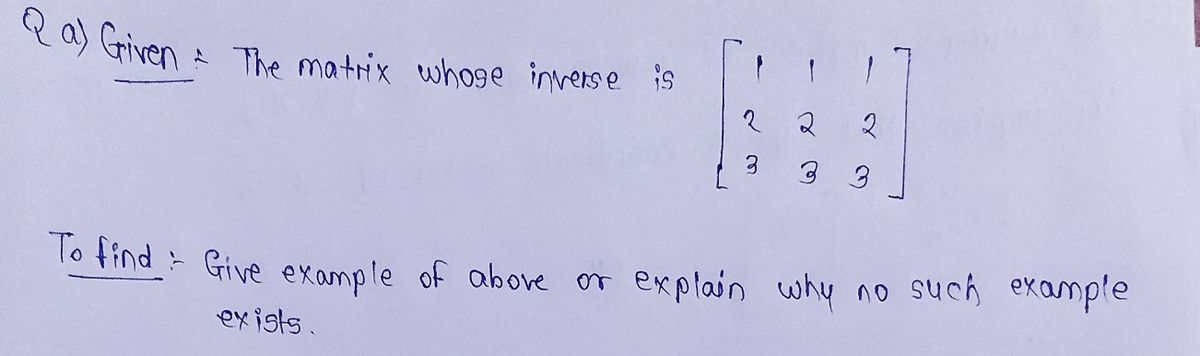 Q a) Given :- The matrix whose inverse is
1 1 1
2 2 2
3 3 3
To find :- Give example of above or explain why no such example
exists.